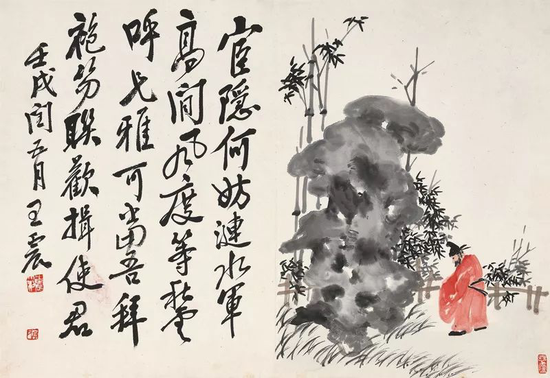 官隱何妨漣水軍
高閒風度等
呼兄雅可當吾拜
袍笏聯歡揖使君
壬戌閏五月王震